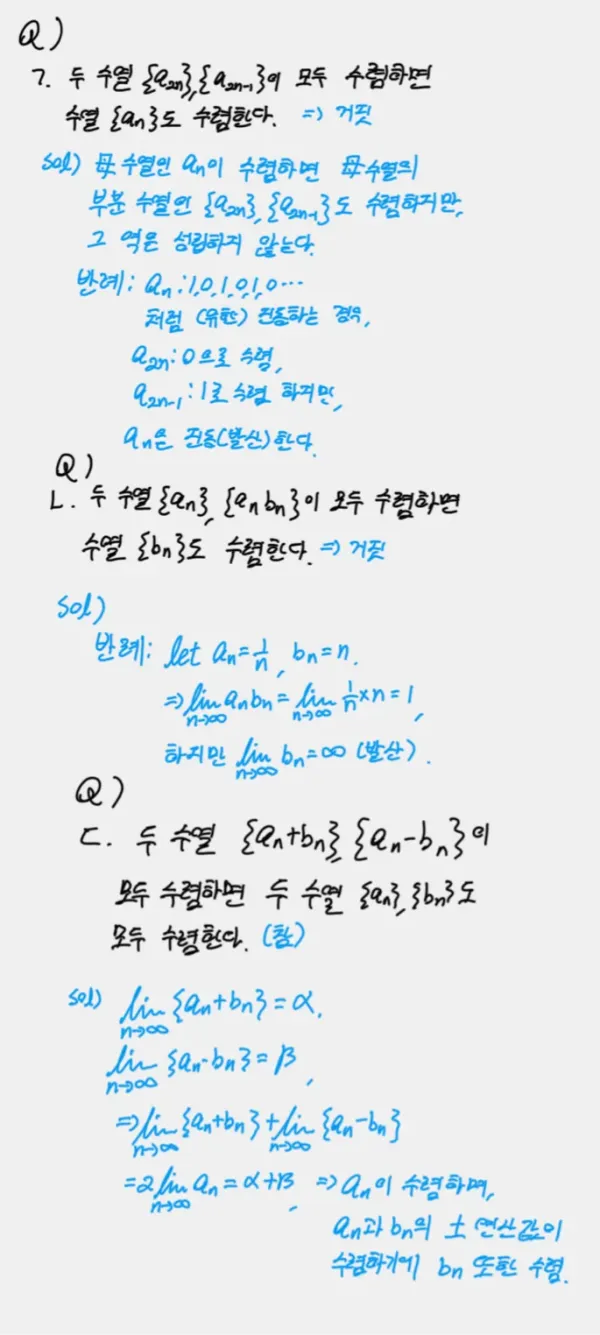 Q)
ㄱ. 두 수열 {a₂ₙ},{a₂ₙ₋₁}이 모두 수렴하면
수열 {aₙ}도 수렴한다. => 거짓
sol) 母수열인 aₙ이 수렴하면 母수열의
부분 수열인 {a₂ₙ}, {a₂ₙ₋₁}도 수렴하지만,
그 역은 성립하지 않는다.
반례: aₙ:1,0,1,0,1,0...
처럼 (유한) 진동하는 경우,
a₂ₙ:0으로 수렴,
a₂ₙ₋₁:1로 수렴 하지만,
aₙ은 진동(발산)한다.
Q)
ㄴ. 두 수열 {aₙ}, {aₙbₙ}이 모두 수렴하면
수열 {bₙ}도 수렴한다. => 거짓
Sol)
반례: let aₙ=1/n, bₙ=n.
=> lim n→∞ aₙbₙ = lim n→∞ 1/n×n=1,
하지만 lim n→∞ bₙ=∞ (발산).
Q)
ㄷ. 두 수열 {aₙ+bₙ}, {aₙ-bₙ}이
모두 수렴하면 두 수열 {aₙ},{bₙ}도
모두 수렴한다. (참)
sol) lim n→∞ {aₙ+bₙ}=α,
lim n→∞ {aₙ-bₙ}=β,
=> lim n→∞ {aₙ+bₙ} + lim n→∞ {aₙ-bₙ}
=2 lim n→∞ aₙ=α+β, => aₙ이 수렴하며,
aₙ과 bₙ의 ± 연산값이
수렴하기에 bₙ 또한 수렴.